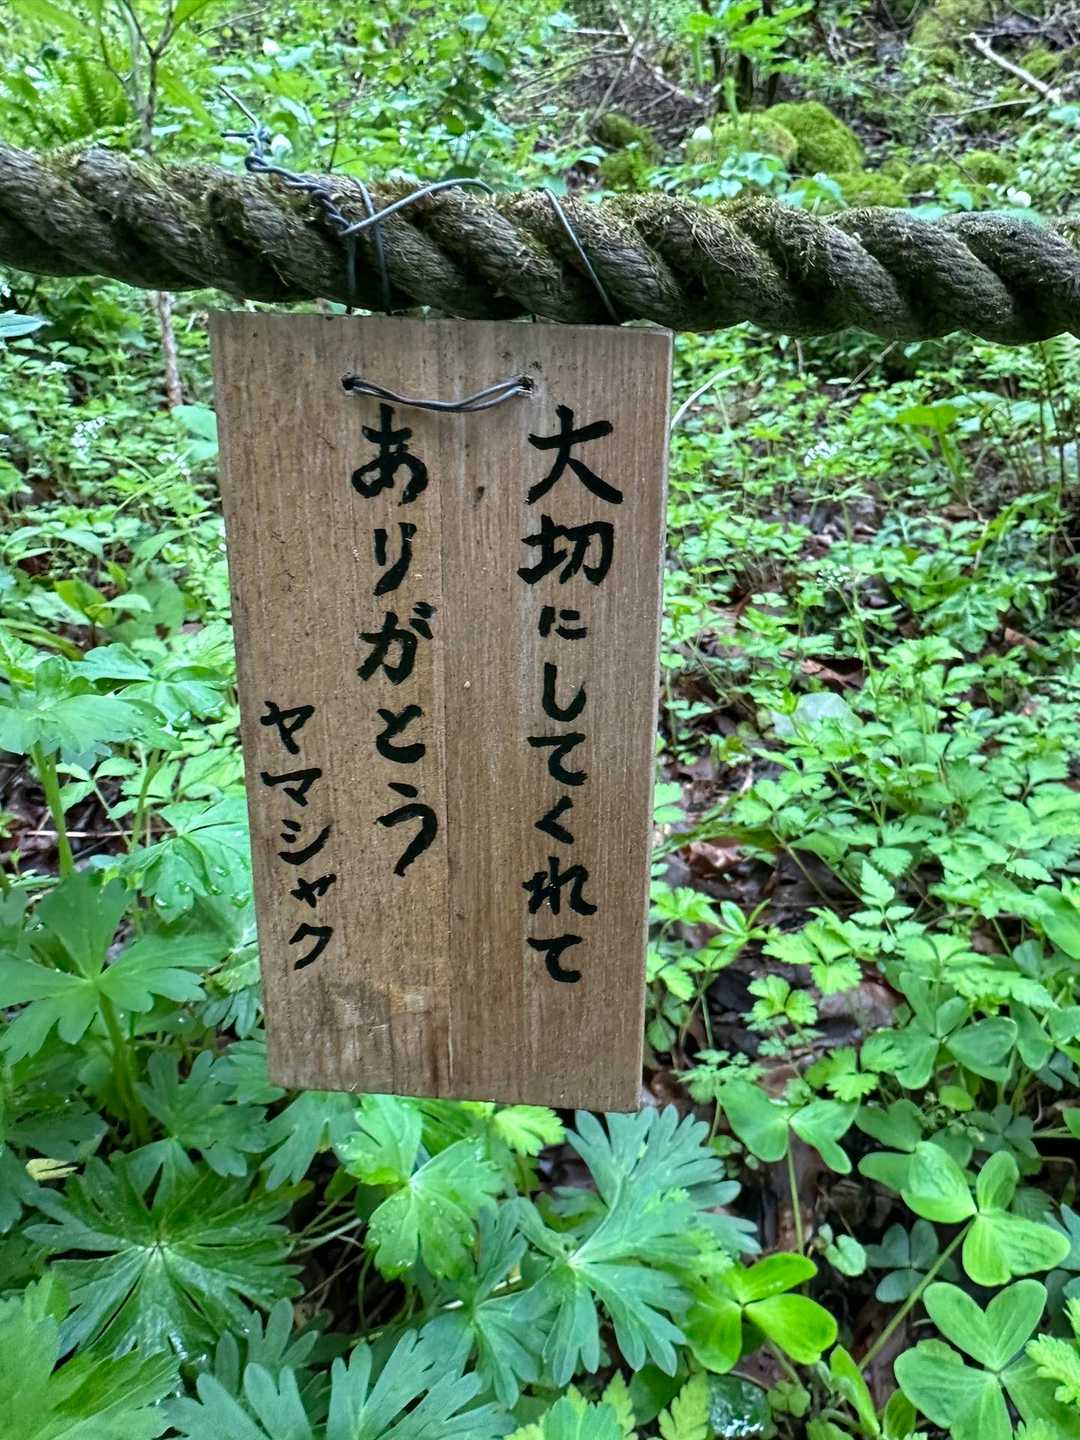 大切にしてくれて
ありがとう
ヤマシャク